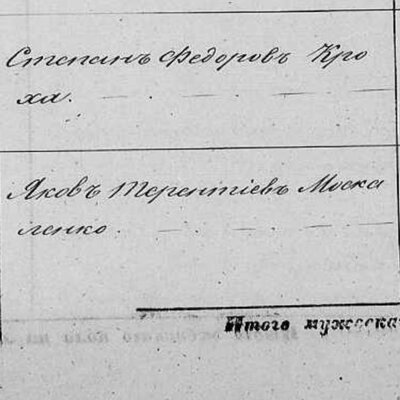 Степанъ Федоровъ Кро
ха.
Яковъ Терентіевъ Моска
ленко.
Итого мужеска